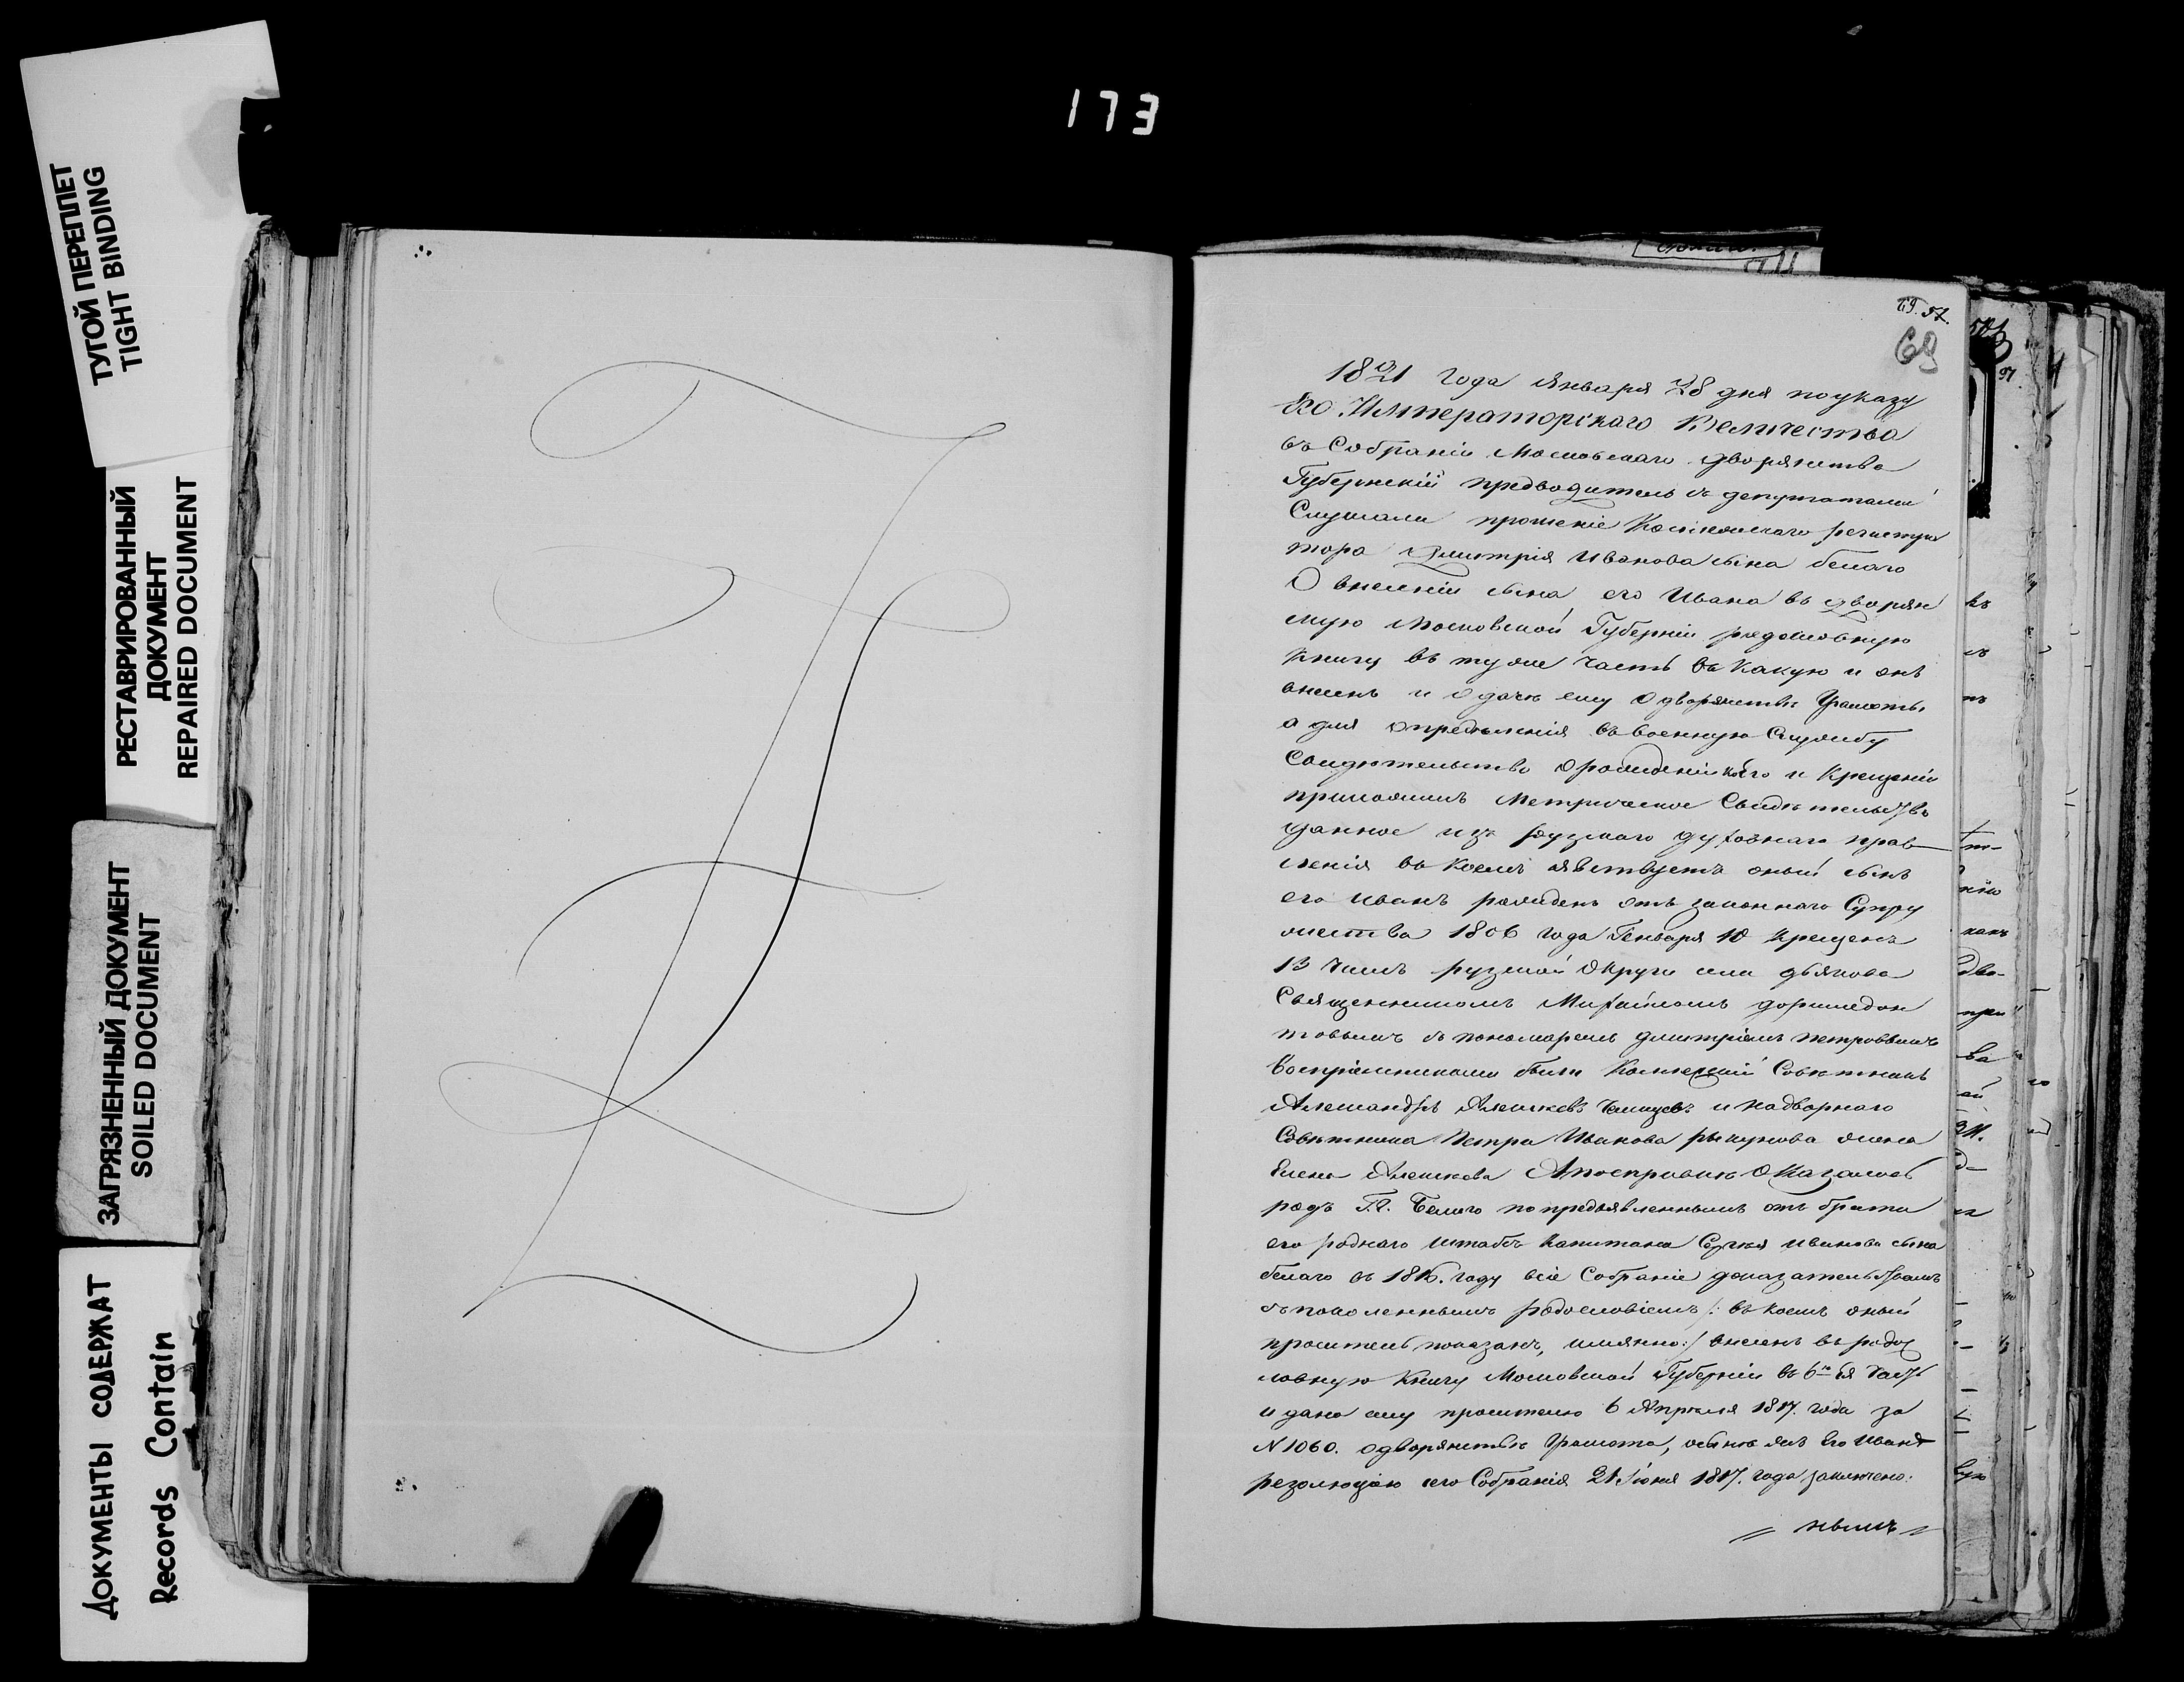 173
ТУГОЙ ПЕРЕПЛЕТ
TIGHT BINDING
РЕСТАВРИРОВАННЫЙ
ДОКУМЕНТ
REPAIRED DOCUMENT
ЗАГРЯЗНЕННЫЙ ДОКУМЕНТ
SOILED DOCUMENT
ДОКУМЕНТЫ СОДЕРЖАТ
Records Contain
69
1821 года Января 28 дня по указу
Его Императорского Величества
въ Собраніи Московскаго дворянства
Губернскій предводитель съ депутатами
Слушали прошеніе регистра
тора Дмитрія Иванова сына белаго
О внесеніи сына его Ивана въ дворян
скую Московской Губерніи родословную
книгу въ туже часть въ какую и онъ
внесенъ и о дачѣ ему о дворянствѣ Грамоты,
а для определенія въ военную Службу
Свидетельства о рожденіи и крещеніи
приложилъ Метрическое Свидетельство
данное изъ рузкаго духовнаго прав
ленія въ коемъ явствуетъ оный сынъ
его Иванъ рожденъ отъ законнаго Супру
жества 1806 года Генваря 10 крещенъ
13 чиселъ рузкой Округи села дьякова
Священникомъ Михайломъ доримедон
товымъ съ пономаремъ дмитріемъ петровымъ
Воспріемниками были Советникъ
Александръ Алексѣевъ и надворнаго
Советника Петра Иванова жена
Елена Алексеева А по справкѣ Оказалось
родъ Г.г. Белаго по предъявленнымъ отъ брата
его роднаго штабсъ капитана Сергѣя иванова сына
белаго въ году въ сіе Собраніе доказательствамъ
съ поколеннымъ родословіемъ /: въ коемъ оный
проситель показанъ, имянно :/ внесенъ въ родос
ловную Книгу Московской Губерніи въ 6ю часть
и дана ему просителю 6 Апреля 1817. года за
N 1060. о дворянствѣ Грамота, о сынѣ жъ его Иванѣ
резолюціею сего Собранія 21 Іюня 1817. года заключено: